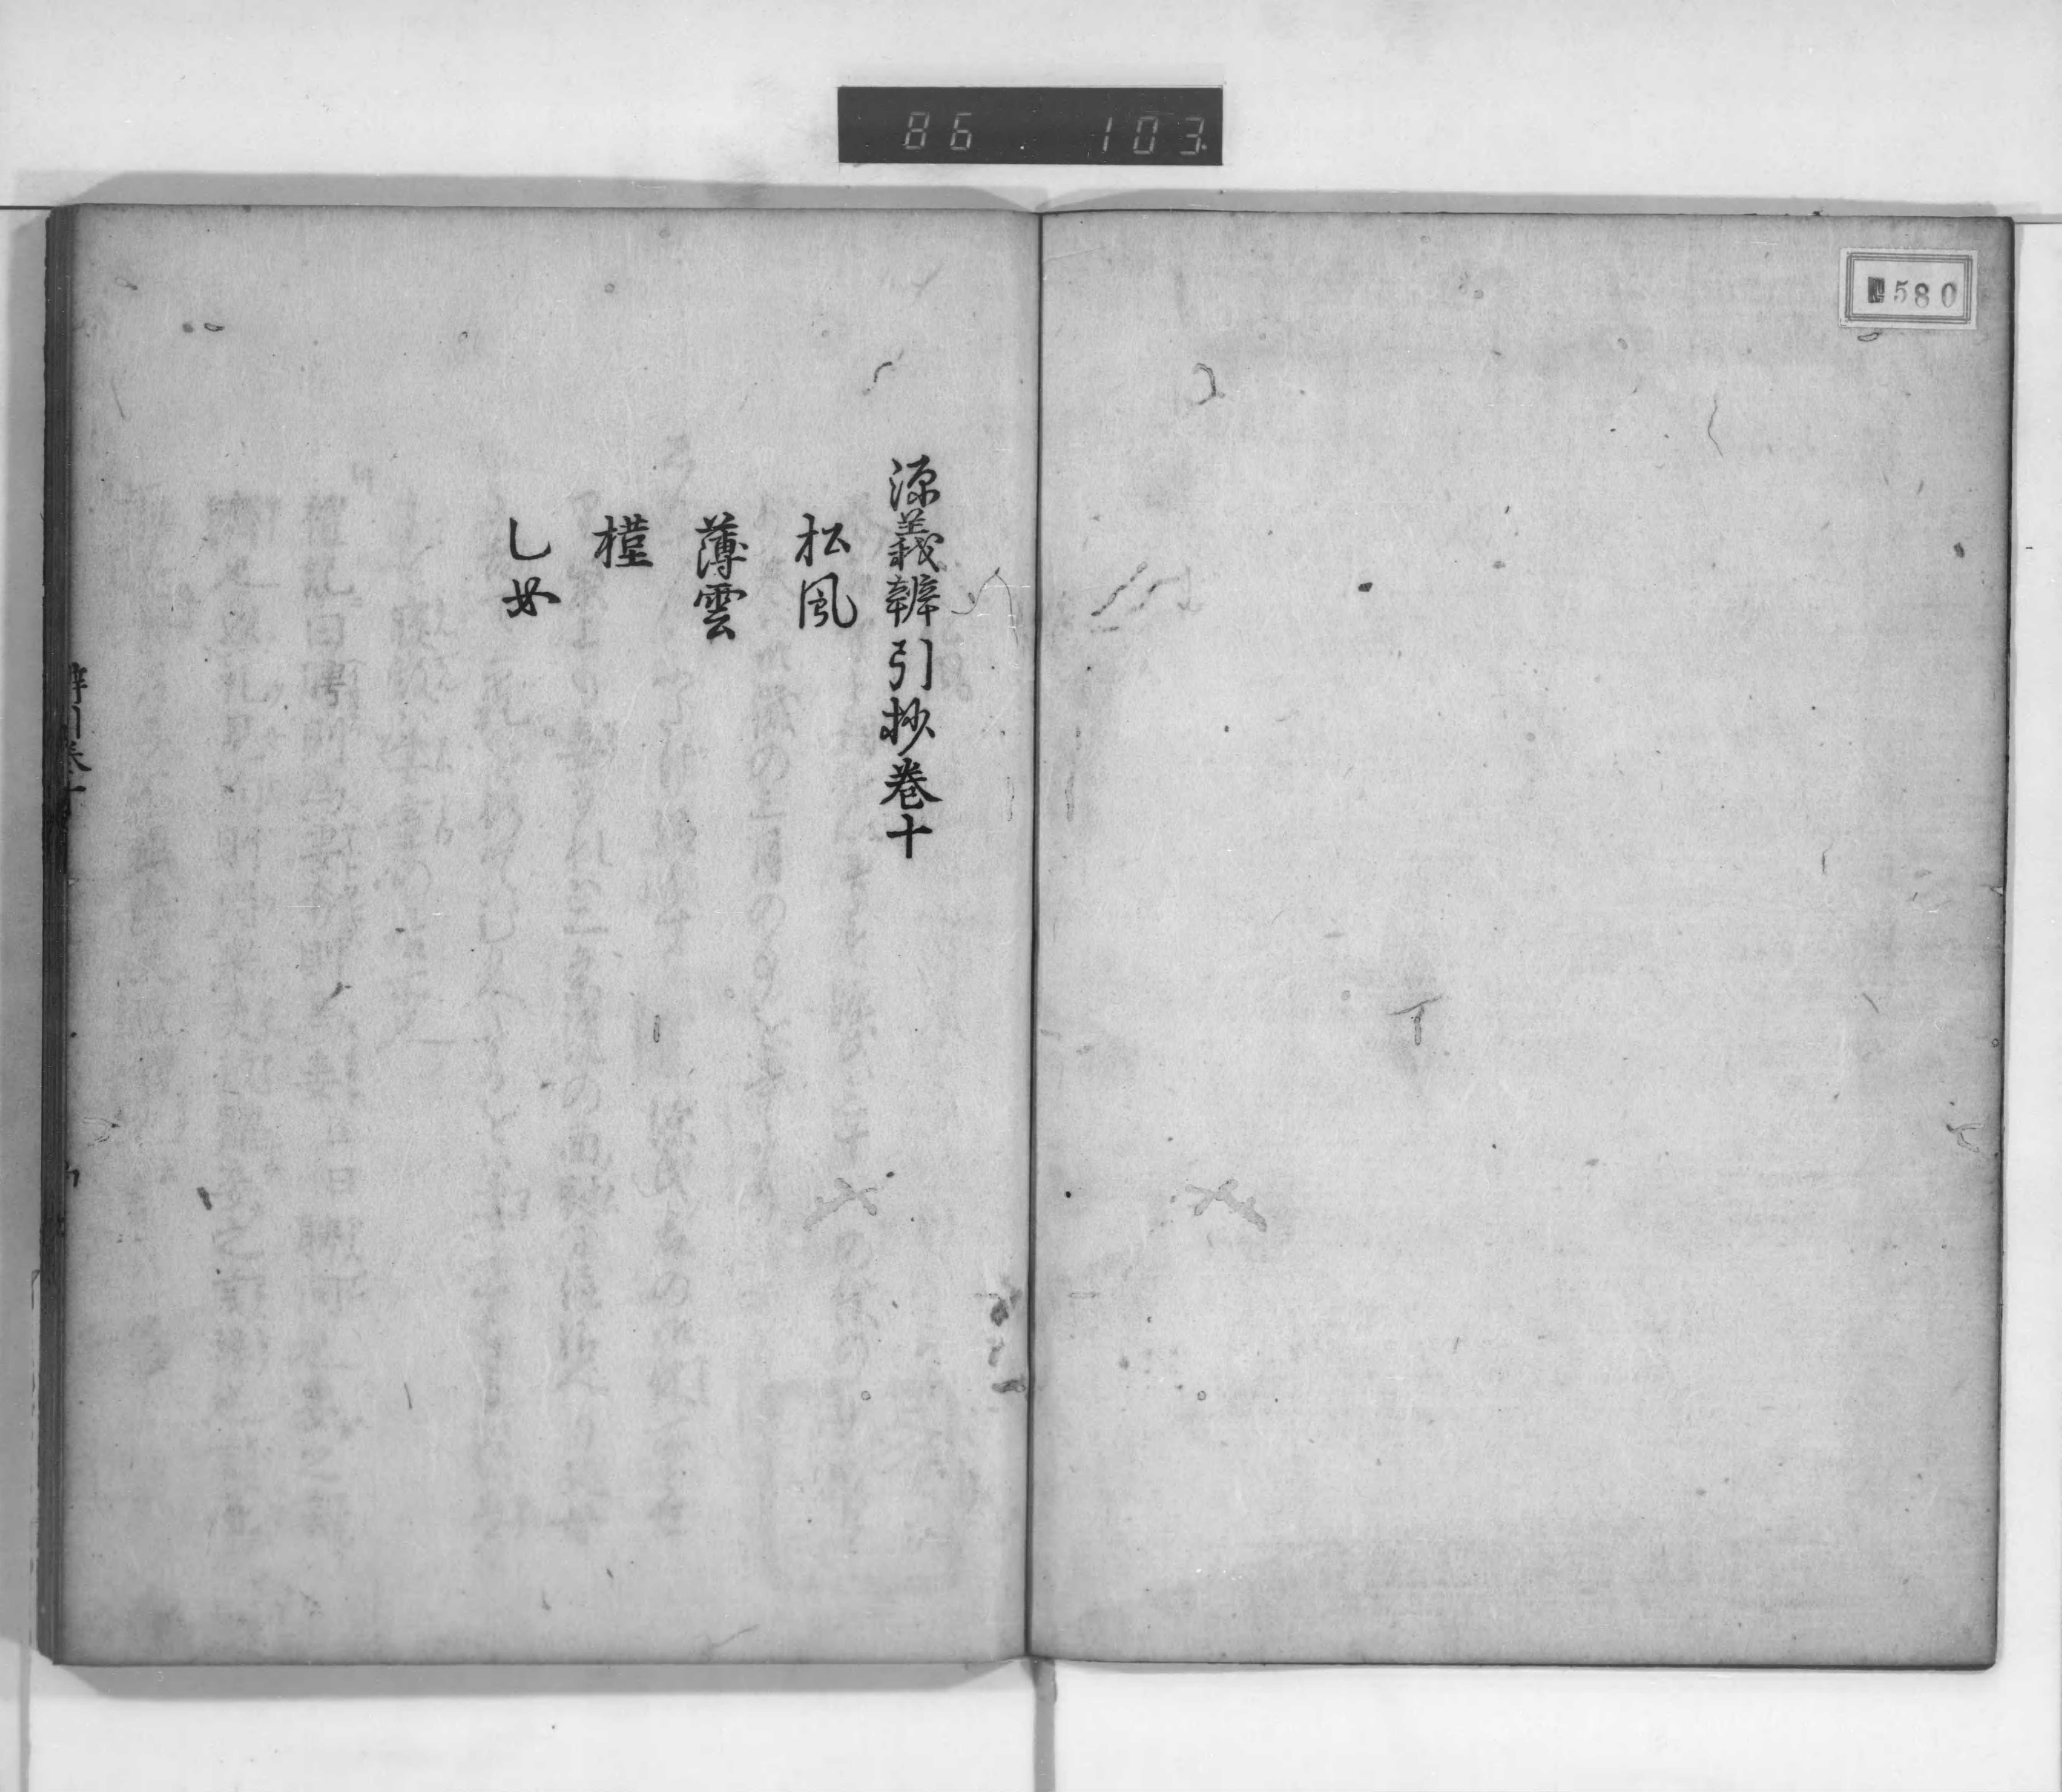 86 103
580
源義辨引抄巻十
松風
薄雲
槿
乙女